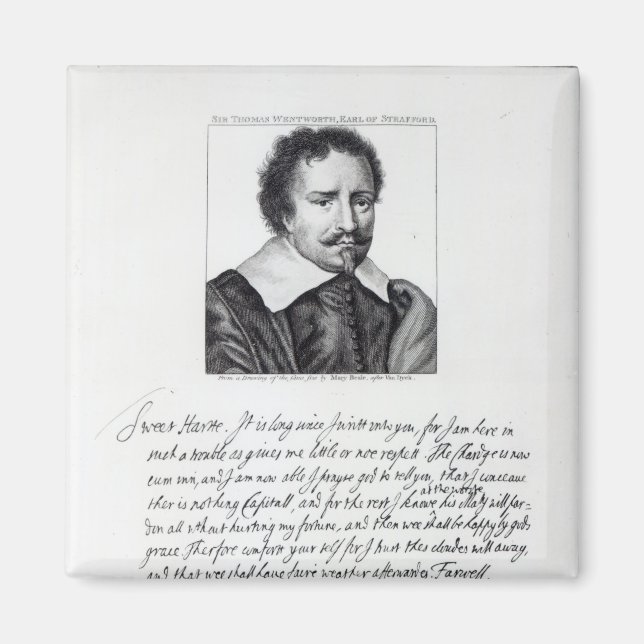 SIR THOMAS WENTWORTH, EARL OF STRAFFORD.
From a Drawing of the same size by Mary Beale, after Van Dyck.
Sweet Harte. It is long since I writt unto you, for I am here in
such a trouble as gives me little or noe respett. The Chardge is now
cum inn, and I am now able I prayse god to tell you, that I conceave
ther is nothing Capitall, and for the rest I knowe
at the worste
his Maty will par-
don all without hurting my fortune, and then wee shall be happy by gods
grace. Therfore comfort your self for I trust thes cloudes will away,
and that wee shall have faire weather afterwardes. Farwell.